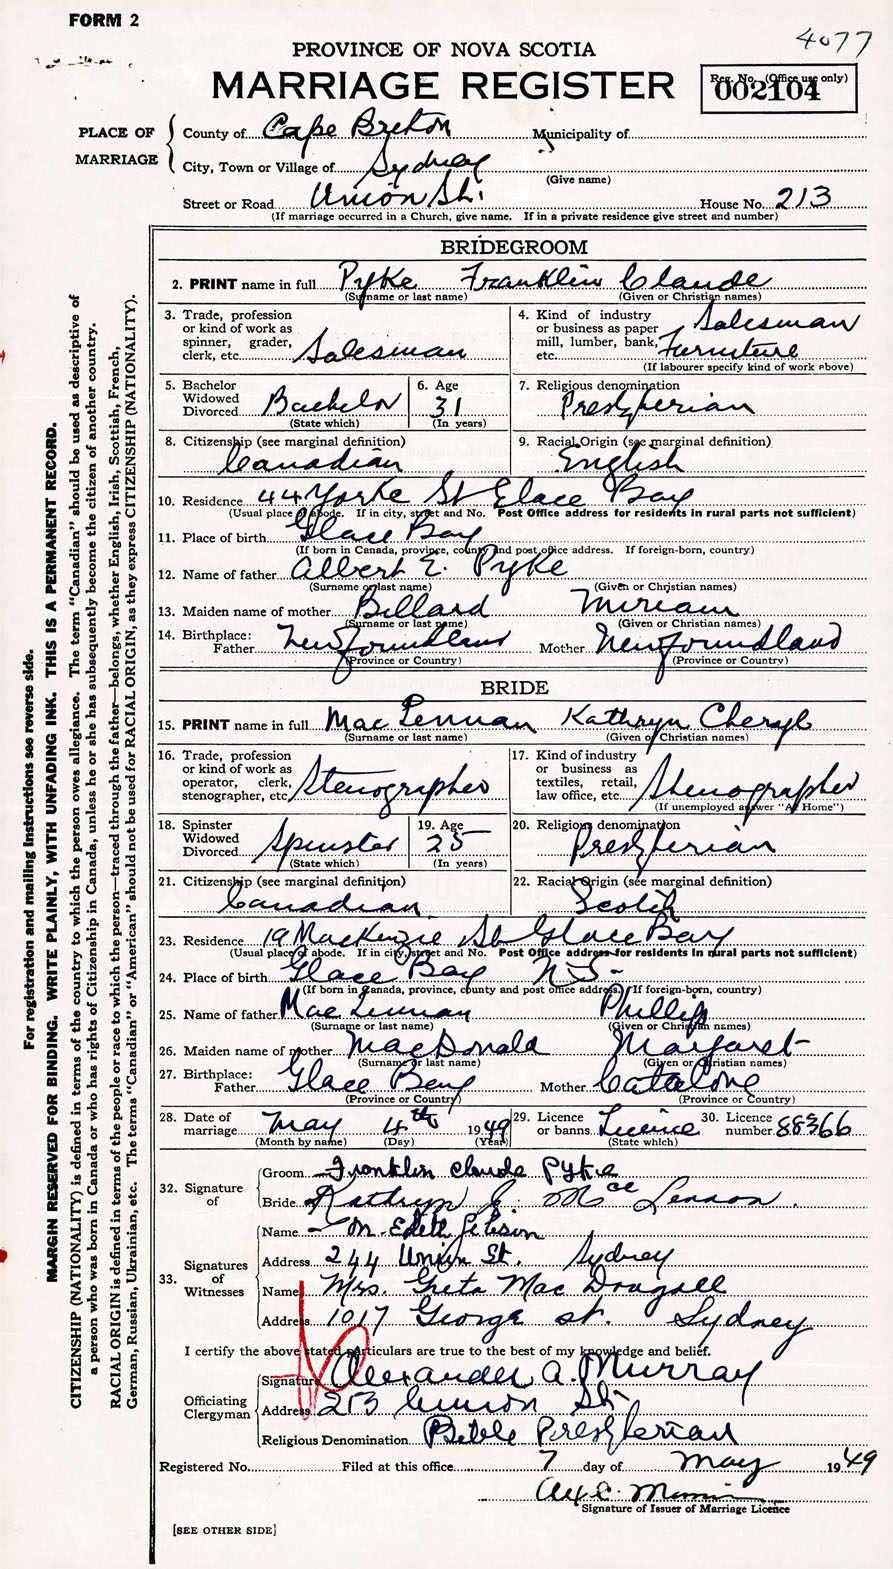 FORM 2
4077
PROVINCE OF NOVA SCOTIA
MARRIAGE REGISTER
Reg. No. (Office use only)
002104
PLACE OF MARRIAGE
County of Cape Breton Municipality of
City, Town or Village of Sydney
(Give name)
Street or Road Union St. House No. 213
(If marriage occurred in a Church, give name. If in a private residence give street and number)
BRIDEGROOM
2. PRINT name in full Pyke Franklin Claude
(Surname or last name) (Given or Christian names)
3. Trade, profession or kind of work as spinner, grader, clerk, etc. Salesman
4. Kind of industry or business as paper mill, lumber, bank, etc. Salesman Furniture
(If labourer specify kind of work above)
5. Bachelor Widowed Divorced Bachelor
(State which)
6. Age 31
(In years)
7. Religious denomination Presbyterian
8. Citizenship (see marginal definition) Canadian
9. Racial Origin (see marginal definition) English
10. Residence 44 Yorke St Glace Bay
(Usual place of abode. If in city, street and No. Post Office address for residents in rural parts not sufficient)
11. Place of birth Glace Bay
(If born in Canada, province, county and post office address. If foreign-born, country)
12. Name of father Albert E. Pyke
(Surname or last name) (Given or Christian names)
13. Maiden name of mother Billard Miriam
(Surname or last name) (Given or Christian names)
14. Birthplace: Father Newfoundland Mother Newfoundland
(Province or Country) (Province or Country)
BRIDE
15. PRINT name in full MacLennan Kathryn Cheryl
(Surname or last name) (Given or Christian names)
16. Trade, profession or kind of work as operator, clerk, stenographer, etc. Stenographer
17. Kind of industry or business as textiles, retail, law office, etc. Stenographer
(If unemployed answer "At Home")
18. Spinster Widowed Divorced Spinster
(State which)
19. Age 25
(In years)
20. Religious denomination Presbyterian
21. Citizenship (see marginal definition) Canadian
22. Racial Origin (see marginal definition) Scotch
23. Residence 19 MacKenzie St Glace Bay
(Usual place of abode. If in city, street and No. Post Office address for residents in rural parts not sufficient)
24. Place of birth Glace Bay N-S-
(If born in Canada, province, county and post office address. If foreign-born, country)
25. Name of father MacLennan Phillip
(Surname or last name) (Given or Christian names)
26. Maiden name of mother MacDonald Margaret
(Surname or last name) (Given or Christian names)
27. Birthplace: Father Glace Bay Mother Catalone
(Province or Country) (Province or Country)
28. Date of marriage May 4th 1949
(Month by name) (Day) (Year)
29. Licence or banns Licence
(State which)
30. Licence number 88366
32. Signature of
Groom Franklin Claude Pyke
Bride Kathryn C. MacLennan
33. Signatures of Witnesses
Name M. Edith
Address 244 Union St. Sydney
Name Mrs. Greta MacDougall
Address 1017 George St. Sydney
I certify the above stated particulars are true to the best of my knowledge and belief.
Officiating Clergyman
Signature Alexander A. Murray
Address 213 Union St
Religious Denomination Bible Presbyterian
Registered No. Filed at this office 7 day of May 1949
Signature of Issuer of Marriage Licence
[SEE OTHER SIDE]
For registration and mailing instructions see reverse side.
MARGIN RESERVED FOR BINDING. WRITE PLAINLY, WITH UNFADING INK. THIS IS A PERMANENT RECORD.
CITIZENSHIP (NATIONALITY) is defined in terms of the country to which the person owes allegiance. The term "Canadian" should be used as descriptive of
a person who was born in Canada or who has rights of Citizenship in Canada, unless he or she has subsequently become the citizen of another country.
RACIAL ORIGIN is defined in terms of the people or race to which the person—traced through the father—belongs, whether English, Irish, Scottish, French,
German, Russian, Ukrainian, etc. The terms "Canadian" or "American" should not be used for RACIAL ORIGIN, as they express CITIZENSHIP (NATIONALITY).